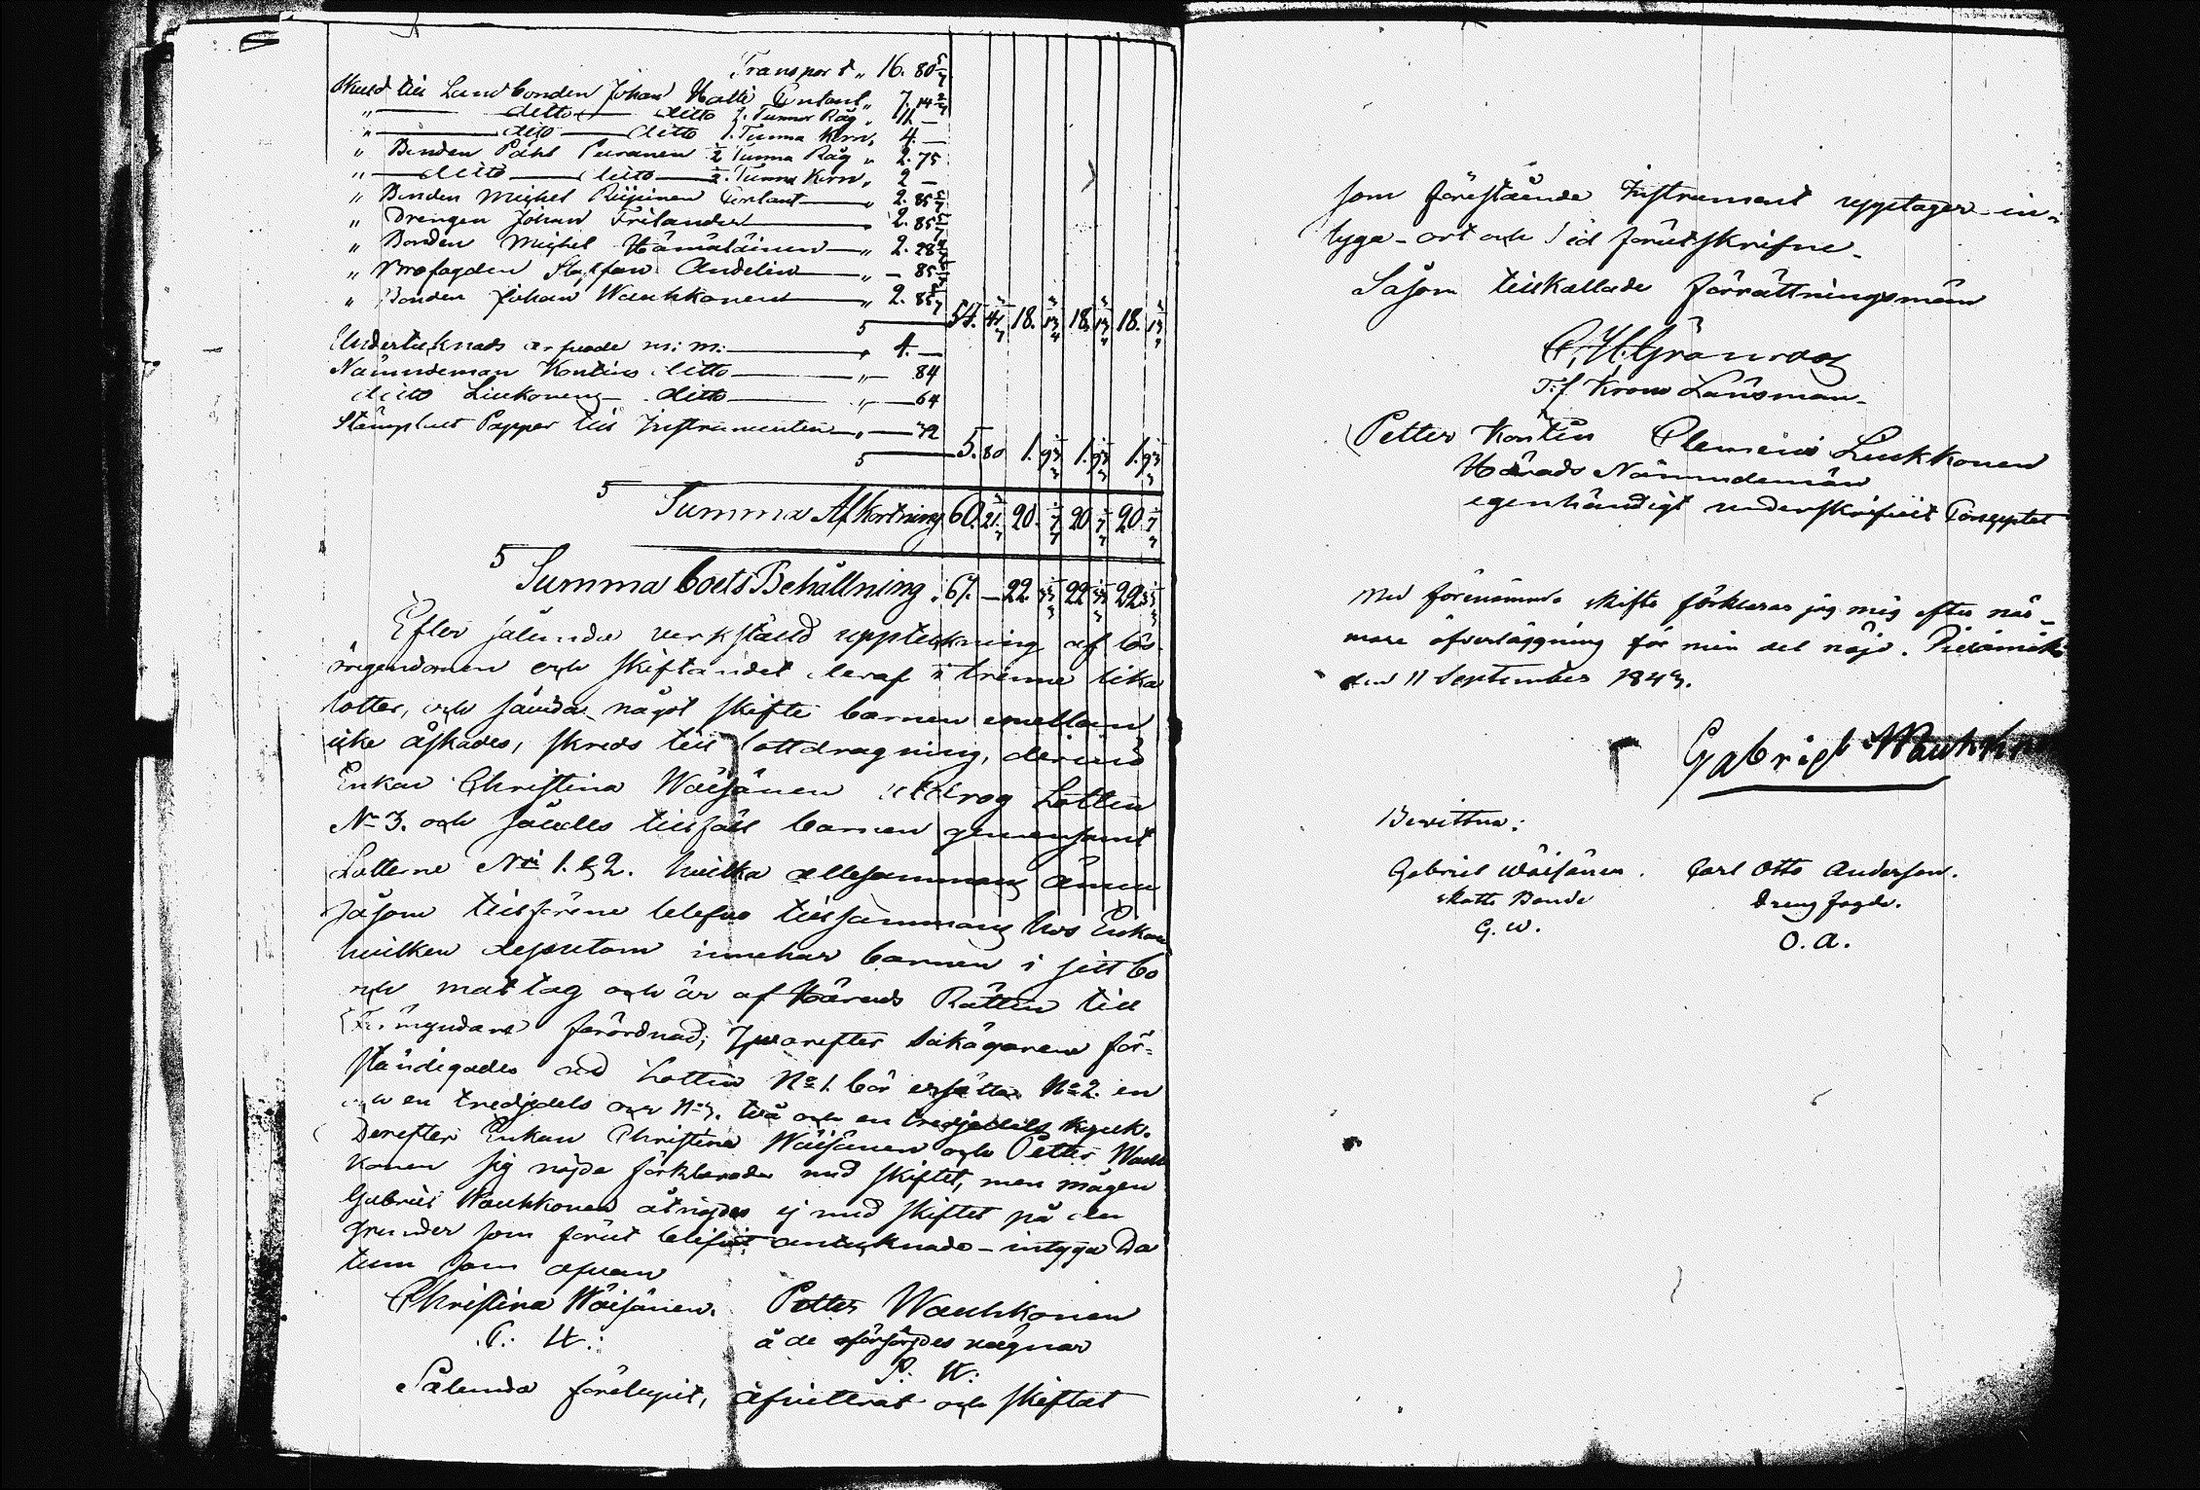 Transport „ 16. 80 5/7
Skuld till Landbonden Johan Halli Contant „ 7. 14 2/7
„ ditto ditto 2. Tunnor Råg „ 11. —
„ dito ditto 1. Tunna Korn „ 4. —
„ Bonden Påhl Puranen 1/2 Tunna Råg „ 2. 75
„ ditto ditto 1/2 Tunna Korn „ 2 —
„ Bonden Michel Contant „ 2. 85 5/7
„ Drengen Johan Frilander „ 2. 85 5/7
„ Bonden Michel Hämäläinen „ 2. 28 4/7
„ Staffan Andelin „ — 85 5/7
„ Bonden Johan Wauhkonen „ 2. 85 5/7
S 54. 41 18. 18. 18.
Undertecknads arfvode m: m: „ 4. —
Nämndeman Kontius ditto „ — 84
ditto Liukkonens ditto „ — 64
Stämpladt Papper till Instrumenten „ — 32
S 5. 80 1. 93 1. 93 1. 93
S Summa Afkortning 60. 21 20. 20. 20
S Summa boets Behållning. 67. — 22. 22 22
Efter sålunda verkställd uppteckning af lös-
öregendomen och skiftandet deraf i trenne lika
lotter, och sedan något skifte barnen emellan
icke äskades, skreds till lottdragning, dervid
Enkan Christina Wäisänen utdrog Lotten
No 3. och således tillföll barnen gemensamt
Lotterne No 1. & 2. hvilka allesammans ännu
såsom tillförene blefvo tillsammans hos Enkan
hvilken dessutom innehar barnen i sitt bo
och mattag och är af Härads Rätten till
Förmyndare förordnad; hvarefter Sakägarene för-
ständigades att Lotten No 1. bör ersätta No 2. en
och en tredjedels och No 3. två och en tredjedels kopek.
Derefter Enkan Christina Wäisänen och Petter Wauh
konen sig nöjde förklarade med skiftet, men mågen
Gabriel Wauhkonen åtnöjdes ej med skiftet på de
grunder som förut blifvit antecknade — intyga Da
tum som ofvan
Christina Wäisänen. Petter Wauhkonen
C: W: å de oförsörjdes vägnar
P: W:
Sålunda förelupit, afvittrat och skiftat
som förestående Instrument upptager in-
tyga — ort och tid förutskrifne.
Såsom tillkallade förrättningsmän
C. H. Grönroos
T: f Krono Länsman.
Petter Kontin Clemens Liukkonen
Härads Nämndemän
egenhändigt underskrifvit Conceptet
Med förenämnda skifte förklarar jag mig efter när-
mare öfverläggning för min del nöjd. Pielavesi
den 11 September 1843.
Gabriel Wauhkonen
Bevittna:
Gabriel Wäisänen. Carl Otto Anderson.
Skatte Bonde Dreng fogde.
G. W. O. A.